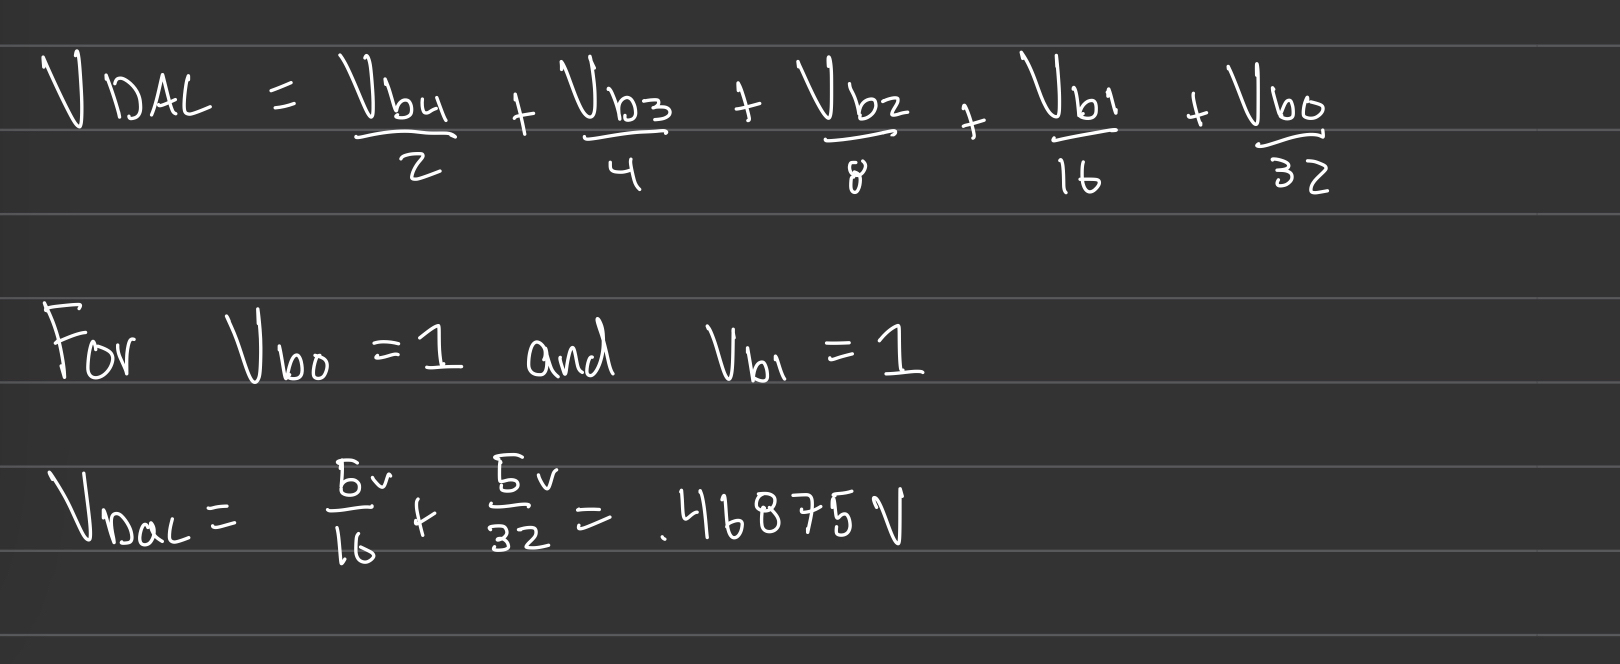 V_DAC = V_b4/2 + V_b3/4 + V_b2/8 + V_b1/16 + V_b0/32
For V_b0 = 1 and V_b1 = 1
V_Dac = 5v/16 + 5v/32 = .46875 V